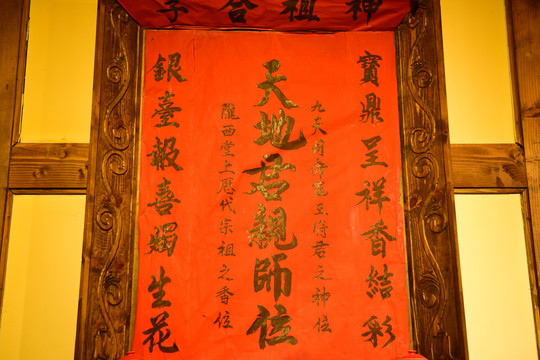 神祖合子
寶鼎呈祥香結彩
九天司命竈王府君之神位
天地君親師位
隴西堂上歷代宗祖之香位
銀臺報喜燭生花